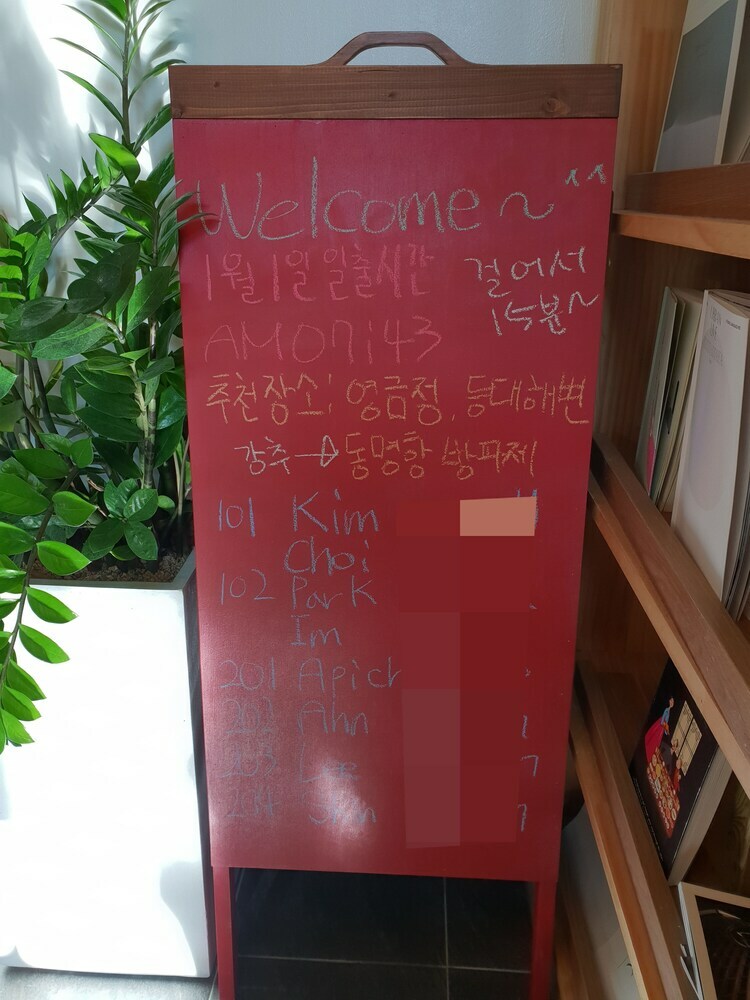 Welcome~^^
1월1일 일출시간
걸어서
15분~
AM 07:43
추천장소: 영금정, 등대해변
강추→동명항 방파제
101 Kim
Choi
102 Park
Im
201 Apich
202 Ahn
203 Lee
204 Shin